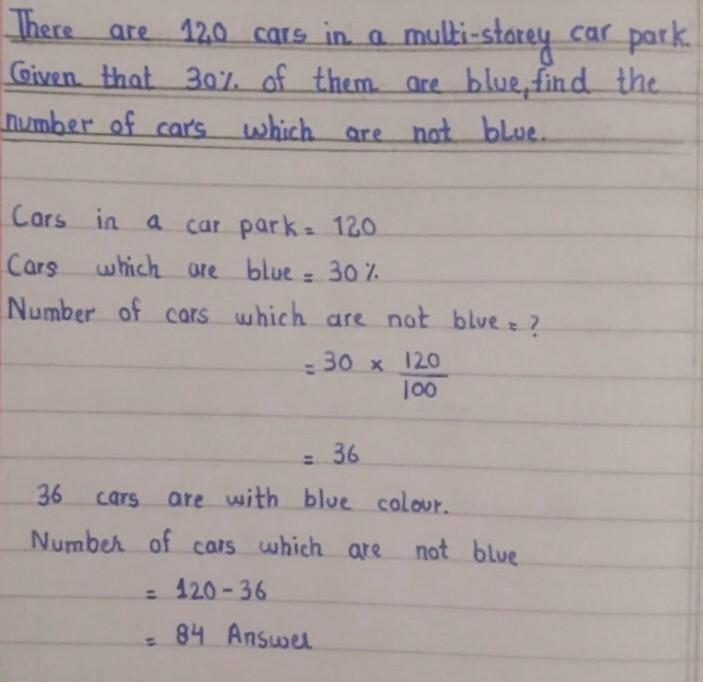 There are 120 cars in a multi-storey car park.
Given that 30% of them are blue, find the
number of cars which are not blue.
Cars in a car park = 120
Cars which are blue = 30%
Number of cars which are not blue = ?
= 30 x 120/100
= 36
36 cars are with blue colour.
Number of cars which are not blue
= 120 - 36
= 84 Answer